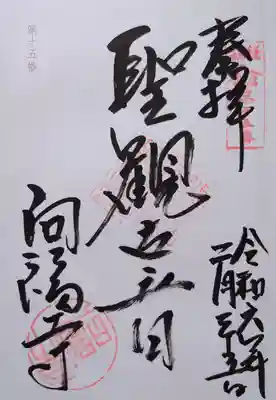 奉拝
令和六年
聖觀世音
向陽寺
第十五番